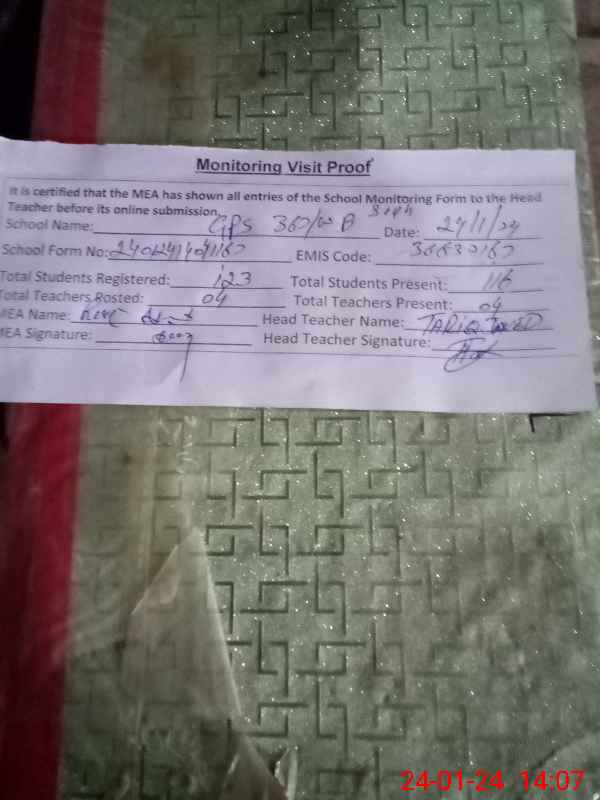 Monitoring Visit Proof
It is certified that the MEA has shown all entries of the School Monitoring Form to the Head
Teacher before its online submission.
School Name: GPS 360/W B Date: 24/1/24
School Form No: EMIS Code:
Total Students Registered: 123 Total Students Present: 116
Total Teachers Rosted: 04 Total Teachers Present: 04
MEA Name: Head Teacher Name: TARIQ
MEA Signature: Head Teacher Signature:
24-01-24 14:07